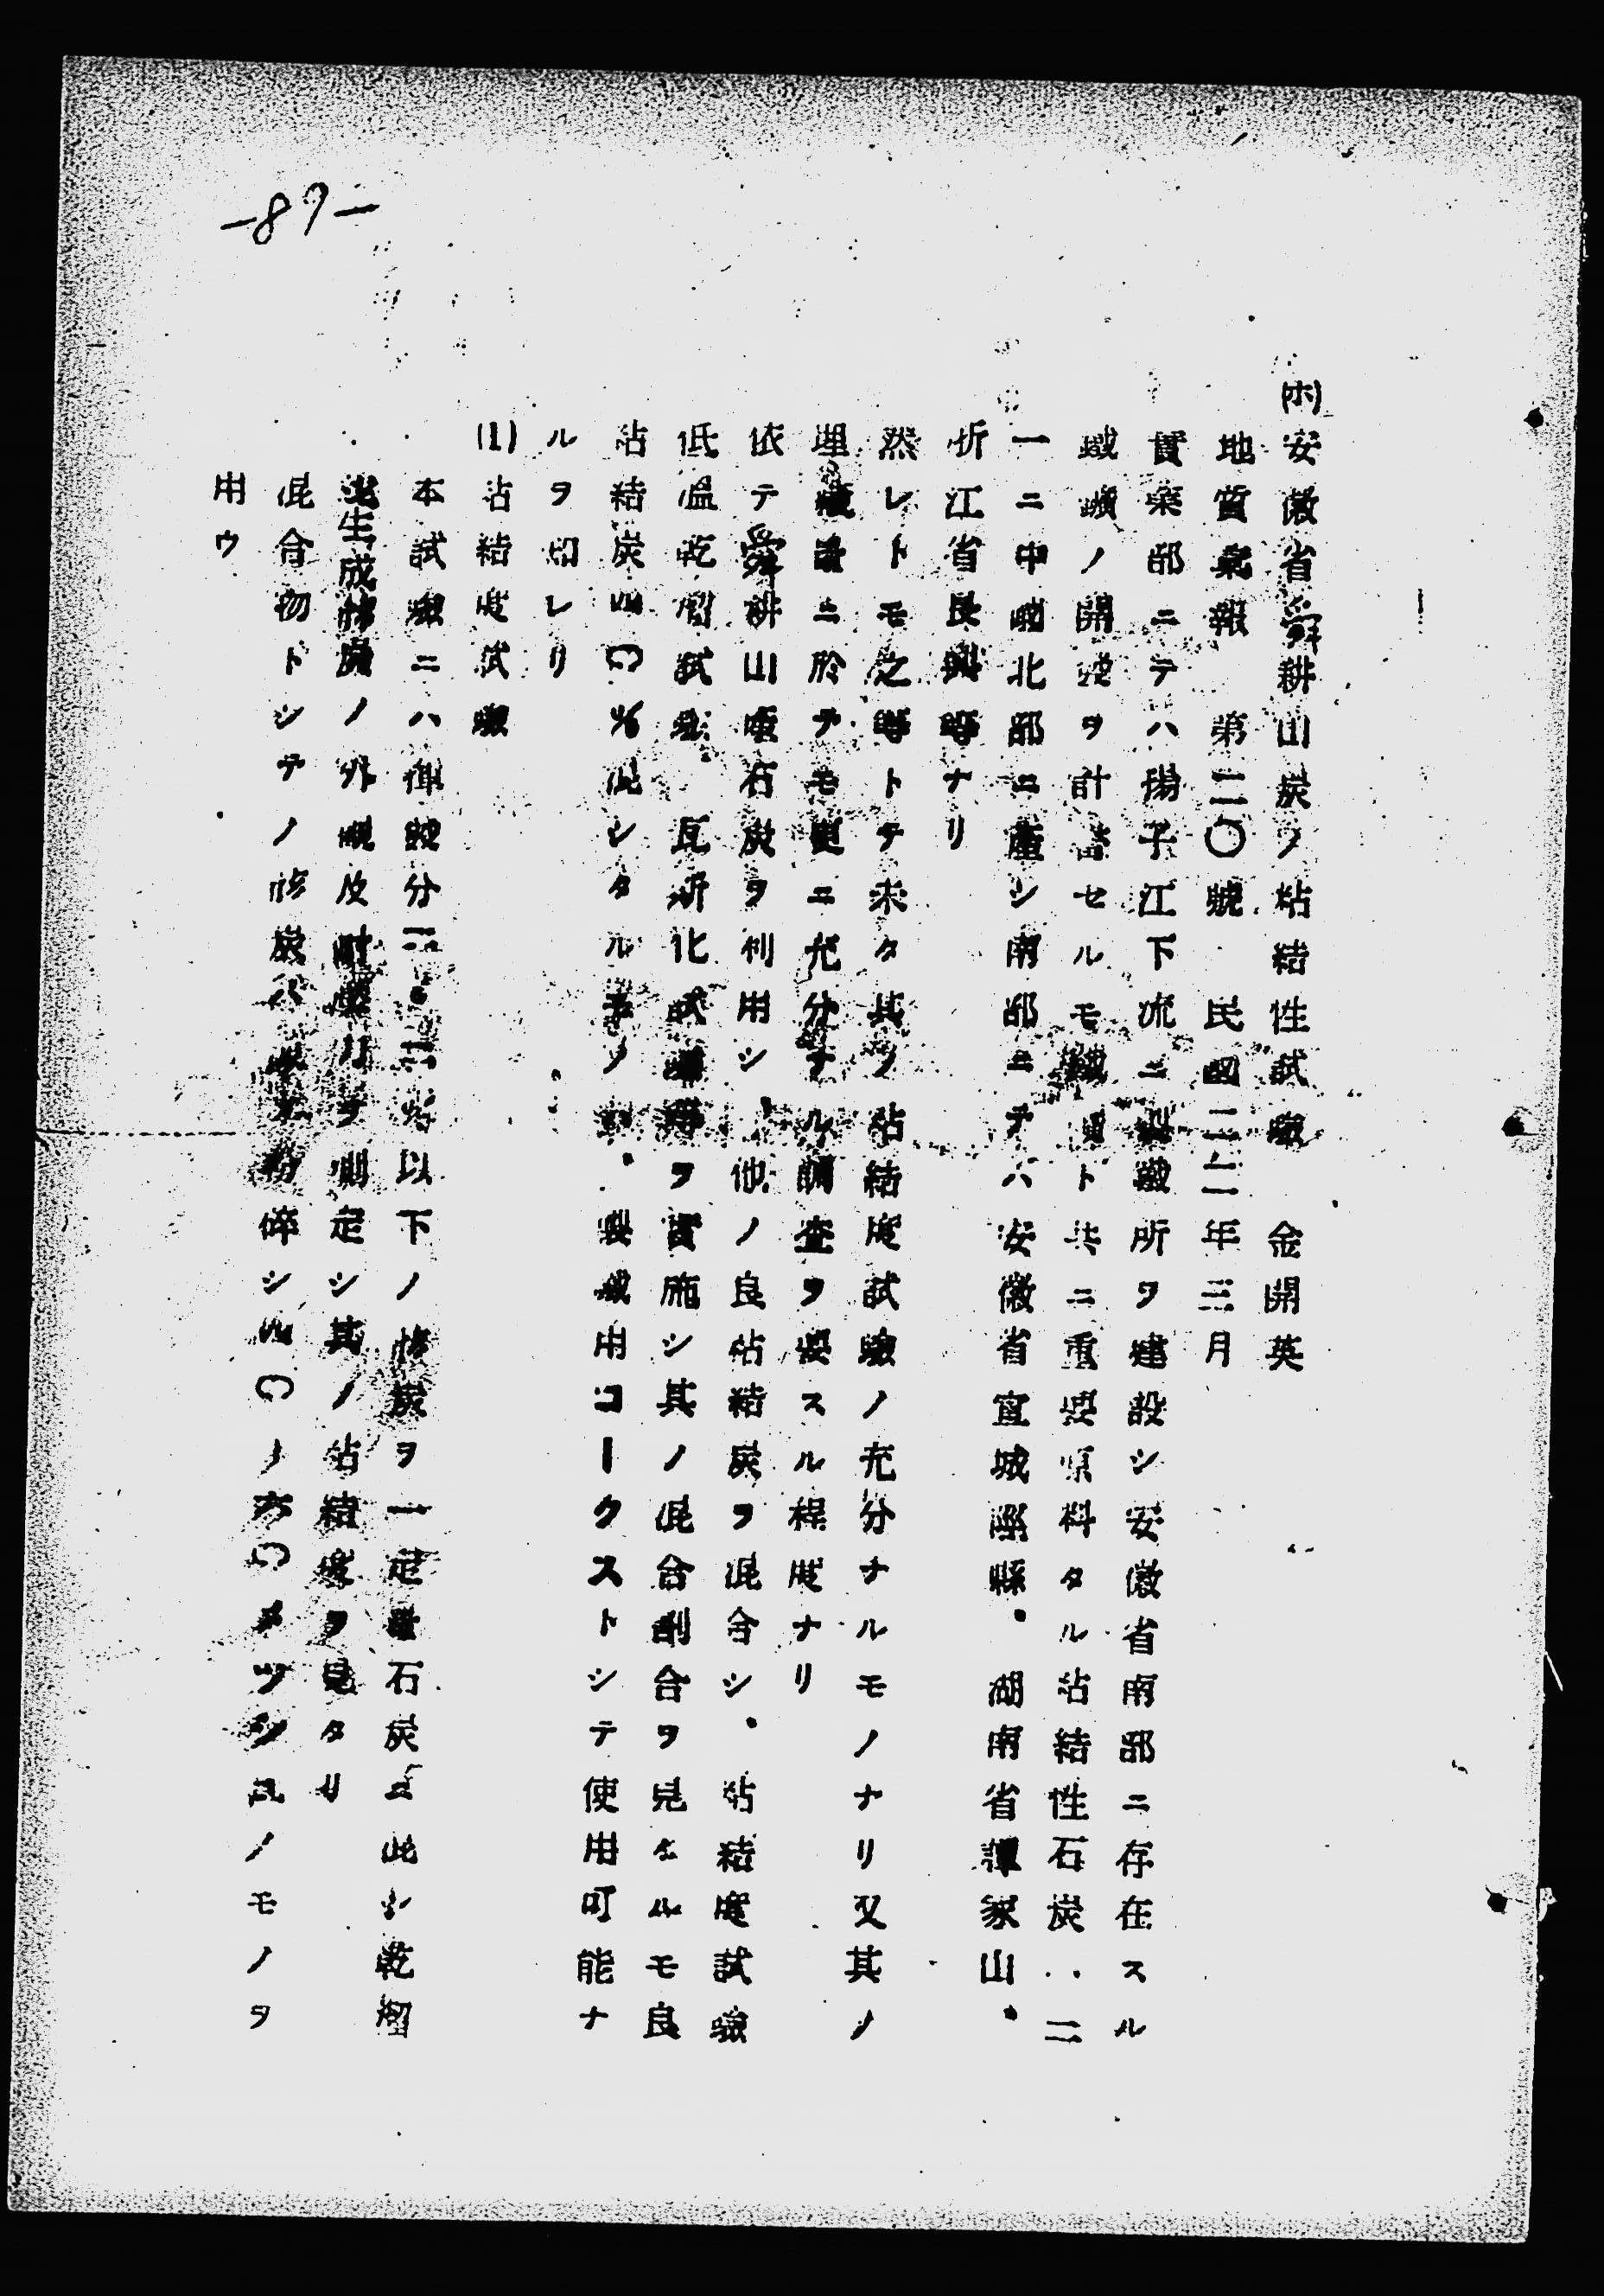 -87-
(ホ)安徽省舜耕山炭ノ粘結性試驗 金開英
地質彙報 第二〇號 民國二二年三月
實業部ニテハ揚子江下流ニ製鐵所ヲ建設シ安徽省南部ニ存在スル
鐵鑛ノ開發ヲ計畫セルモ鐵鑛ト共ニ重要原料タル粘結性石炭・・二
一ニ中國北部ニ產シ南部ニテハ安徽省宣城縣・湖南省譚家山、
浙江省長興等ナリ
然レトモ之等トテ未タ其ノ粘結度試驗ノ充分ナルモノナリ又其ノ
埋藏量ニ於テモ更ニ充分ナル調査ヲ要スル程度ナリ
依テ舜耕山產石炭ヲ利用シ、他ノ良粘結炭ヲ混合シ、粘結度試驗
低溫乾餾試驗 瓦斯化試驗等ヲ實施シ其ノ混合割合ヲ見タルモ良
粘結炭四〇%混シタル ノ 、製鐵用コークストシテ使用可能ナ
ルヲ知レリ
(1)粘結度試驗
本試驗ニハ揮發分 以下ノ骸炭ヲ一定量石炭ニ混シ乾餾
生成 ノ外觀及耐壓力ヲ測定シ其ノ粘結度ヲ見タリ
混合物トシテノ骸炭ハ 粉碎シ四〇ノ六〇メツシユノモノヲ
用ウ